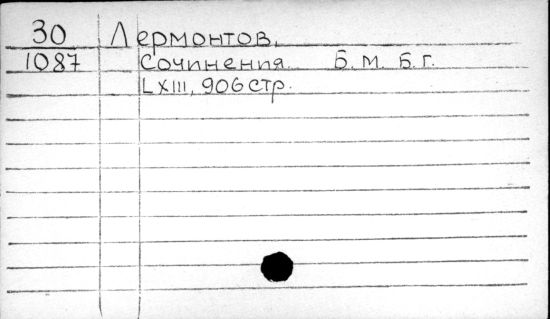 30 Лермонтов,
1087 Сочинения. Б. м. Б. г.
LXIII, 906 стр.